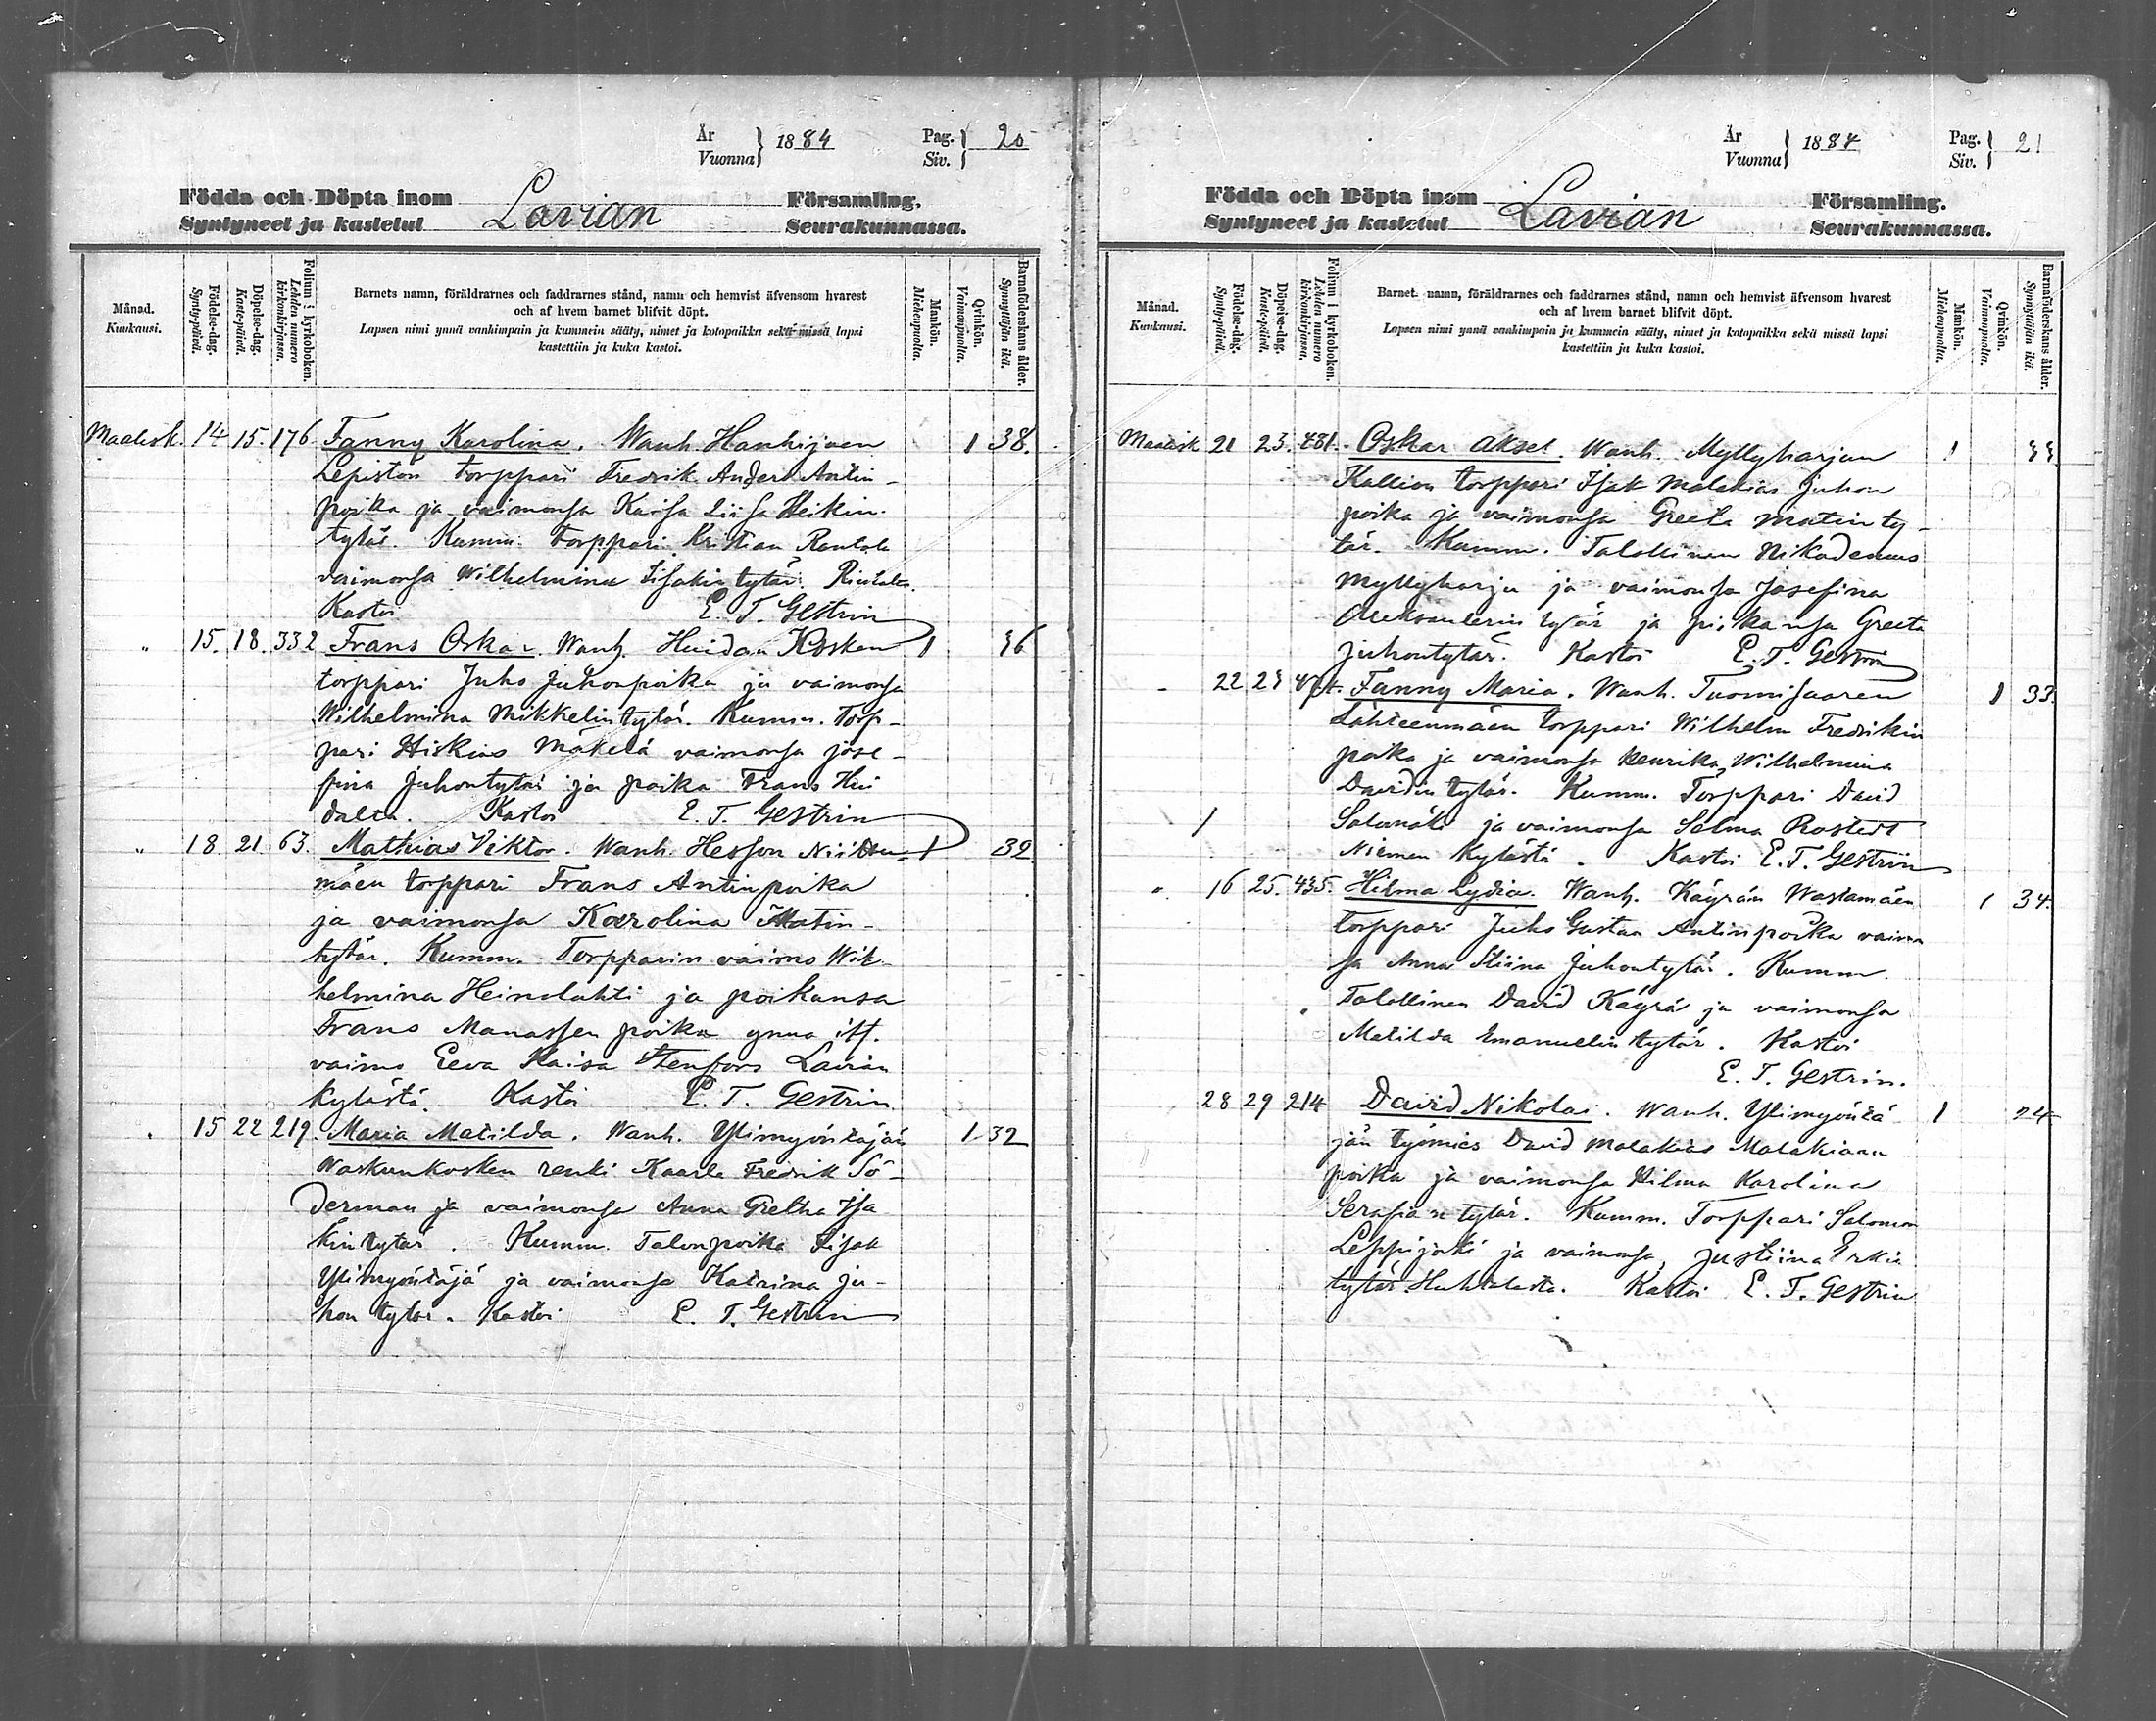 År
Vuonna } 1884 Pag.
Siv. } 20
Födda och Döpta inom Församling.
Syntyneet ja kastetut Lavian Seurakunnassa.
Månad.
Kuukausi.
Födelse-dag.
Synty-päivä.
Döpelse-dag.
Kaste-päivä.
Folium i kyrkoboken.
Lehden numero kirkonkirjassa.
Barnets namn, föräldrarnes och faddrarnes stånd, namn och hemvist äfvensom hvarest
och af hvem barnet blifvit döpt.
Lapsen nimi ynnä vanhimpain ja kummein sääty, nimet ja kotopaikka sekä missä lapsi
kastettiin ja kuka kastoi.
Mankön.
Miehenpuolta.
Qvinkön.
Vaimonpuolta.
Barnaföderskans ålder.
Synnyttäjän ikä.
Maalisk. 14 15. 176 Fanny Karolina. Wanh. Hanhijoen 1 38.
Lepistön torppari Fredrik Anders Antin-
poika ja vaimonsa Kaisa Liisa Heikin-
tytär. Kumm. torppari Kristian Rantala
vaimonsa Wilhelmina Iisakin tytär.
Kastoi E. T. Gestrin
" 15. 18. 332 Frans Oskar. Wanh. Huidan Kosken 1 36
torppari Juho Juhonpoika ja vaimonsa
Wilhelmina Mikkelintytär. Kumm. Torp-
pari Hiskias Mäkelä vaimonsa Jose-
fina Juhontytär ja poika Frans Hui
dalta. Kastoi E. T. Gestrin
" 18. 21. 63. Mathias Viktor. Wanh. Hesson Niitun- 1 32
mäen torppari Frans Antinpoika
ja vaimonsa Karolina Matin-
tytär. Kumm. Torpparin vaimo Wil-
helmina Heinolahti ja poikansa
Frans Manassen poika ynnä itt.
vaimo Eeva Kaisa Stenfors Lavian
kylästä. Kastoi E. T. Gestrin.
15 22 219. Maria Matilda. Wanh. Ylimyöntäjän 1 32
Waskunkosken renki Kaarle Fredrik Sö-
derman ja vaimonsa Anna Gretha Isa
kin tytär. Kumm. Talonpoika Iisak
Ylimyöntäjä ja vaimonsa Katrina Ju-
hon tytär. Kastoi E. T. Gestrin
År
Vuonna } 1884 Pag.
Siv. } 21
Födda och Döpta inom Församling.
Syntyneet ja kastetut Lavian Seurakunnassa.
Månad.
Kuukausi.
Födelse-dag.
Synty-päivä.
Döpelse-dag.
Kaste-päivä.
Folium i kyrkoboken.
Lehden numero kirkonkirjassa.
Barnets namn, föräldrarnes och faddrarnes stånd, namn och hemvist äfvensom hvarest
och af hvem barnet blifvit döpt.
Lapsen nimi ynnä vanhimpain ja kummein sääty, nimet ja kotopaikka sekä missä lapsi
kastettiin ja kuka kastoi.
Mankön.
Miehenpuolta.
Qvinkön.
Vaimonpuolta.
Barnaföderskans ålder.
Synnyttäjän ikä.
Maalisk 21 23. 481. Oskar Aksel. Wanh. Myllyharjun 1 33
Kallion torppari Isak Malakias Juhon
poika ja vaimonsa Greeta Matin ty-
tär. Kumm. Talollinen Nikodemus
Myllyharju ja vaimonsa Josefina
Aleksanterin tytär ja piikansa Greeta
Juhontytär. Kastoi E. T. Gestrin
22 23 Fanny Maria. Wanh. Tuomisaaren 1 33.
Lähteenmäen torppari Wilhelm Fredrikin
poika ja vaimonsa Henrika Wilhelmina
Davidin tytär. Kumm. Torppari David
Salomäki ja vaimonsa Selma Rostedt
Niemen kylästä. Kastoi E. T. Gestrin
" 16 25. 435. Hilma Lydia. Wanh. Käyrän Wastamäen 1 34.
torppari Juho Gustaa Antinpoika vaimon
sa Anna Stiina Juhontytär. Kumm.
Talollinen David Käyrä ja vaimonsa
Matilda Emanuelin tytär. Kastoi
E. T. Gestrin.
28 29 214 David Nikolai. Wanh. Ylimyöntä 1 24
jän työmies David Malakias Malakiaan
poika ja vaimonsa Hilma Karolina
Serafian tytär. Kumm. Torppari Salomon
Leppijoki ja vaimonsa Justiina Erkin
tytär Huhtalasta. Kastoi E. T. Gestrin